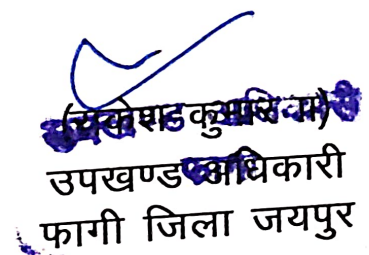 कुमार
उपखण्ड अधिकारी
फागी जिला जयपुर